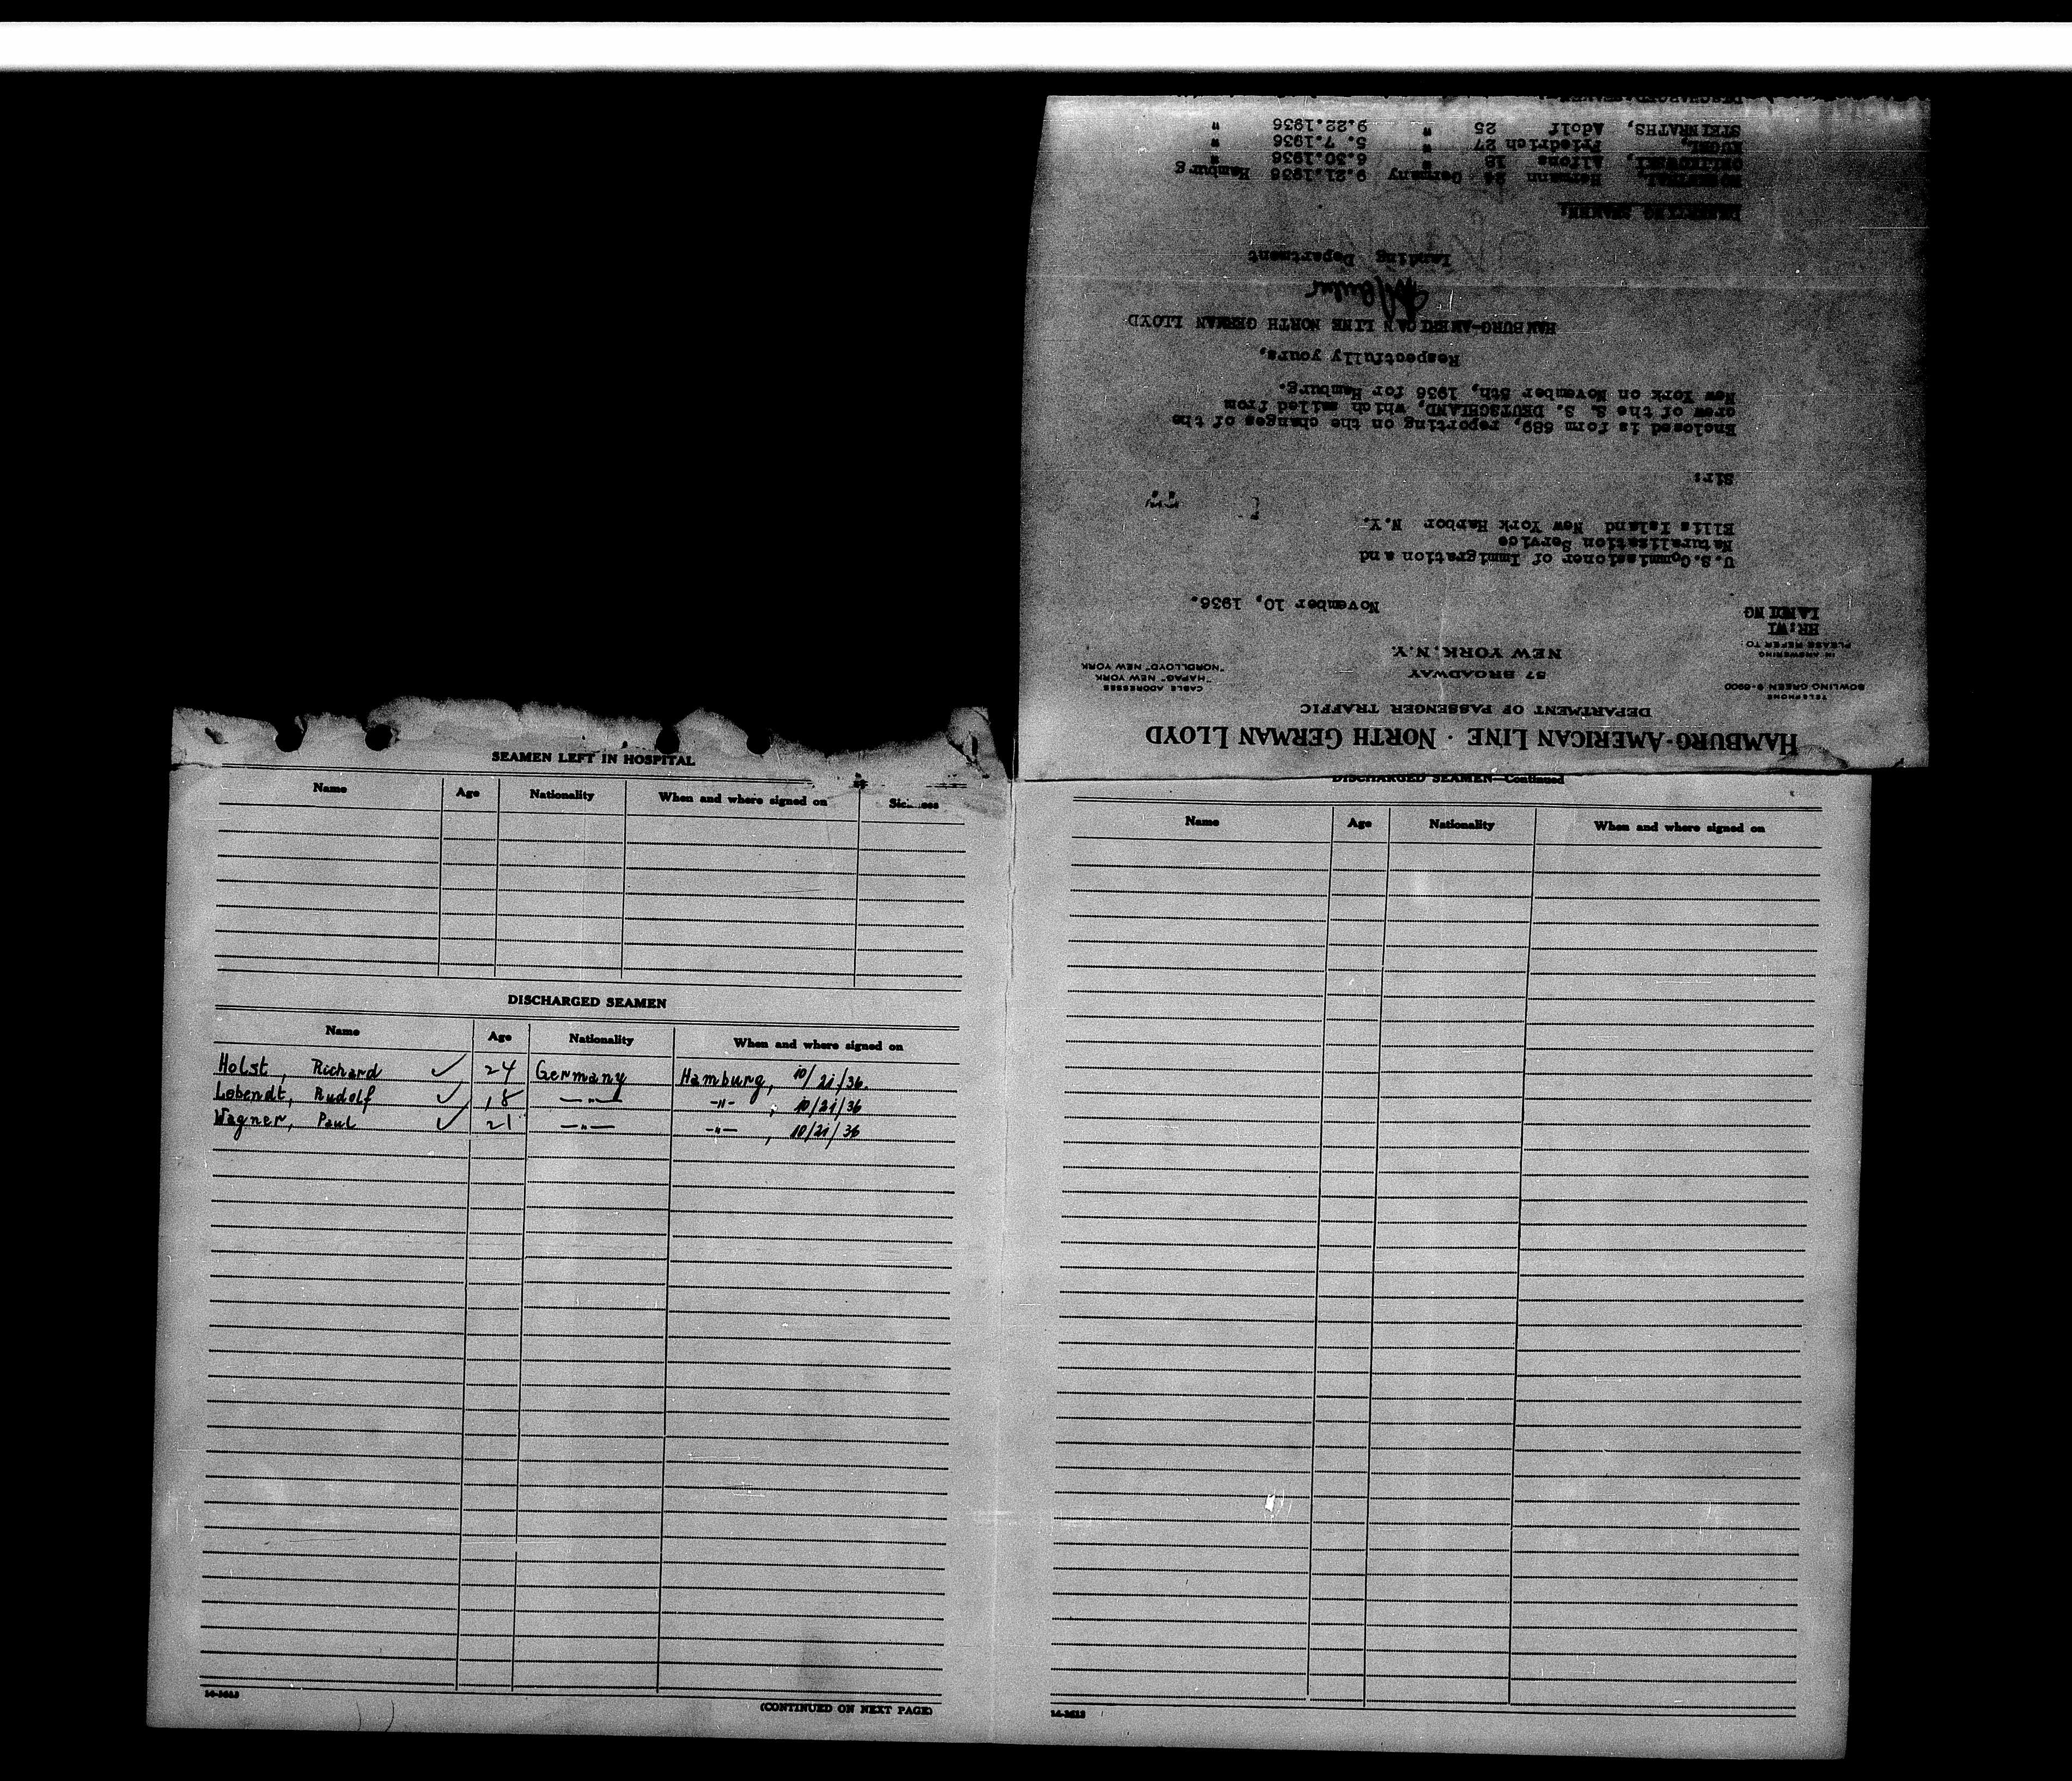 HAMBURG-AMERICAN LINE · NORTH GERMAN LLOYD
DEPARTMENT OF PASSENGER TRAFFIC
TELEPHONE
BOWLING GREEN 9-6900
57 BROADWAY
NEW YORK, N.Y.
CABLE ADDRESSES
"HAPAG" NEW YORK
"NORDLLOYD" NEW YORK
IN ANSWERING
PLEASE REFER TO
HR:WI
LANDING
November 10, 1936.
U.S. Commissioner of Immigration and
Naturalization Service
Ellis Island New York Harbor N.Y.
Sir:
Enclosed is form 689, reporting on the changes of the
crew of the S. S. DEUTSCHLAND, which sailed from
New York on November 5th, 1936 for Hamburg.
Respectfully yours,
HAMBURG-AMERICAN LINE NORTH GERMAN LLOYD
Landing Department
DESERTING SEAMEN:
Hermann 24 Germany 9.21.1936 Hamburg
Alfons 18 " 6.30.1936 "
KUGEL, Friedrich 27 " 5. 7.1936 "
STEINRATHS, Adolf 25 " 9.22.1936 "
DISCHARGED SEAMEN:
SEAMEN LEFT IN HOSPITAL
Name Age Nationality When and where signed on
DISCHARGED SEAMEN
Name Age Nationality When and where signed on
Holst, Richard ✓ 24 Germany Hamburg, 10/21/36.
Lobendt, Rudolf ✓ 18 —"— -"- , 10/21/36
Wagner, Paul ✓ 21 —"— -"- , 10/21/36
(CONTINUED ON NEXT PAGE)
DISCHARGED SEAMEN—Continued
Name Age Nationality When and where signed on